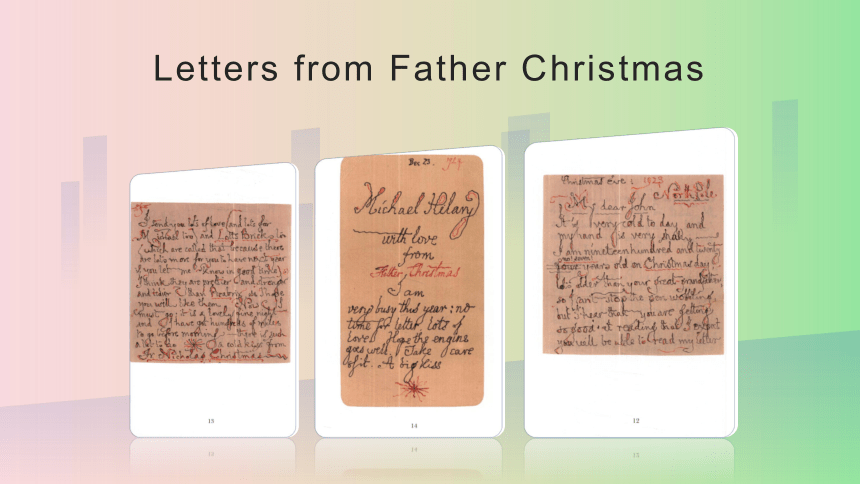 Letters from Father Christmas
I send you lots of love (and lots for
Michael too) and Lotts Bricks too
(which are called that because there
are lots more for you to have next year
if you let me know in good time).
I think they are prettier and stronger
and tidier than Picabrix. So I hope
you will like them. Now I
must go: it is a lovely fine night
and I have got hundreds of miles
to go before morning — there is such
a lot to do. a cold kiss from
Fr. Nicholas Christmas
13
Dec 23. 1924
Michael Hilary
with love
from
Father Christmas
I am
very busy this year: no
time for letter. Lots of
love. Hope the engine
goes well. Take care
of it. A big kiss
14
Christmas Eve: 1923
North Pole
My dear John
It is very cold to day and
my hand is very shaky —
I am nineteen hundred and twenty
four years old on Christmas day
lots older than your great-grandfather,
so I can't stop the pen wobbling,
but I hear that you are getting
so good at reading that I expect
you will be able to read my letter
12